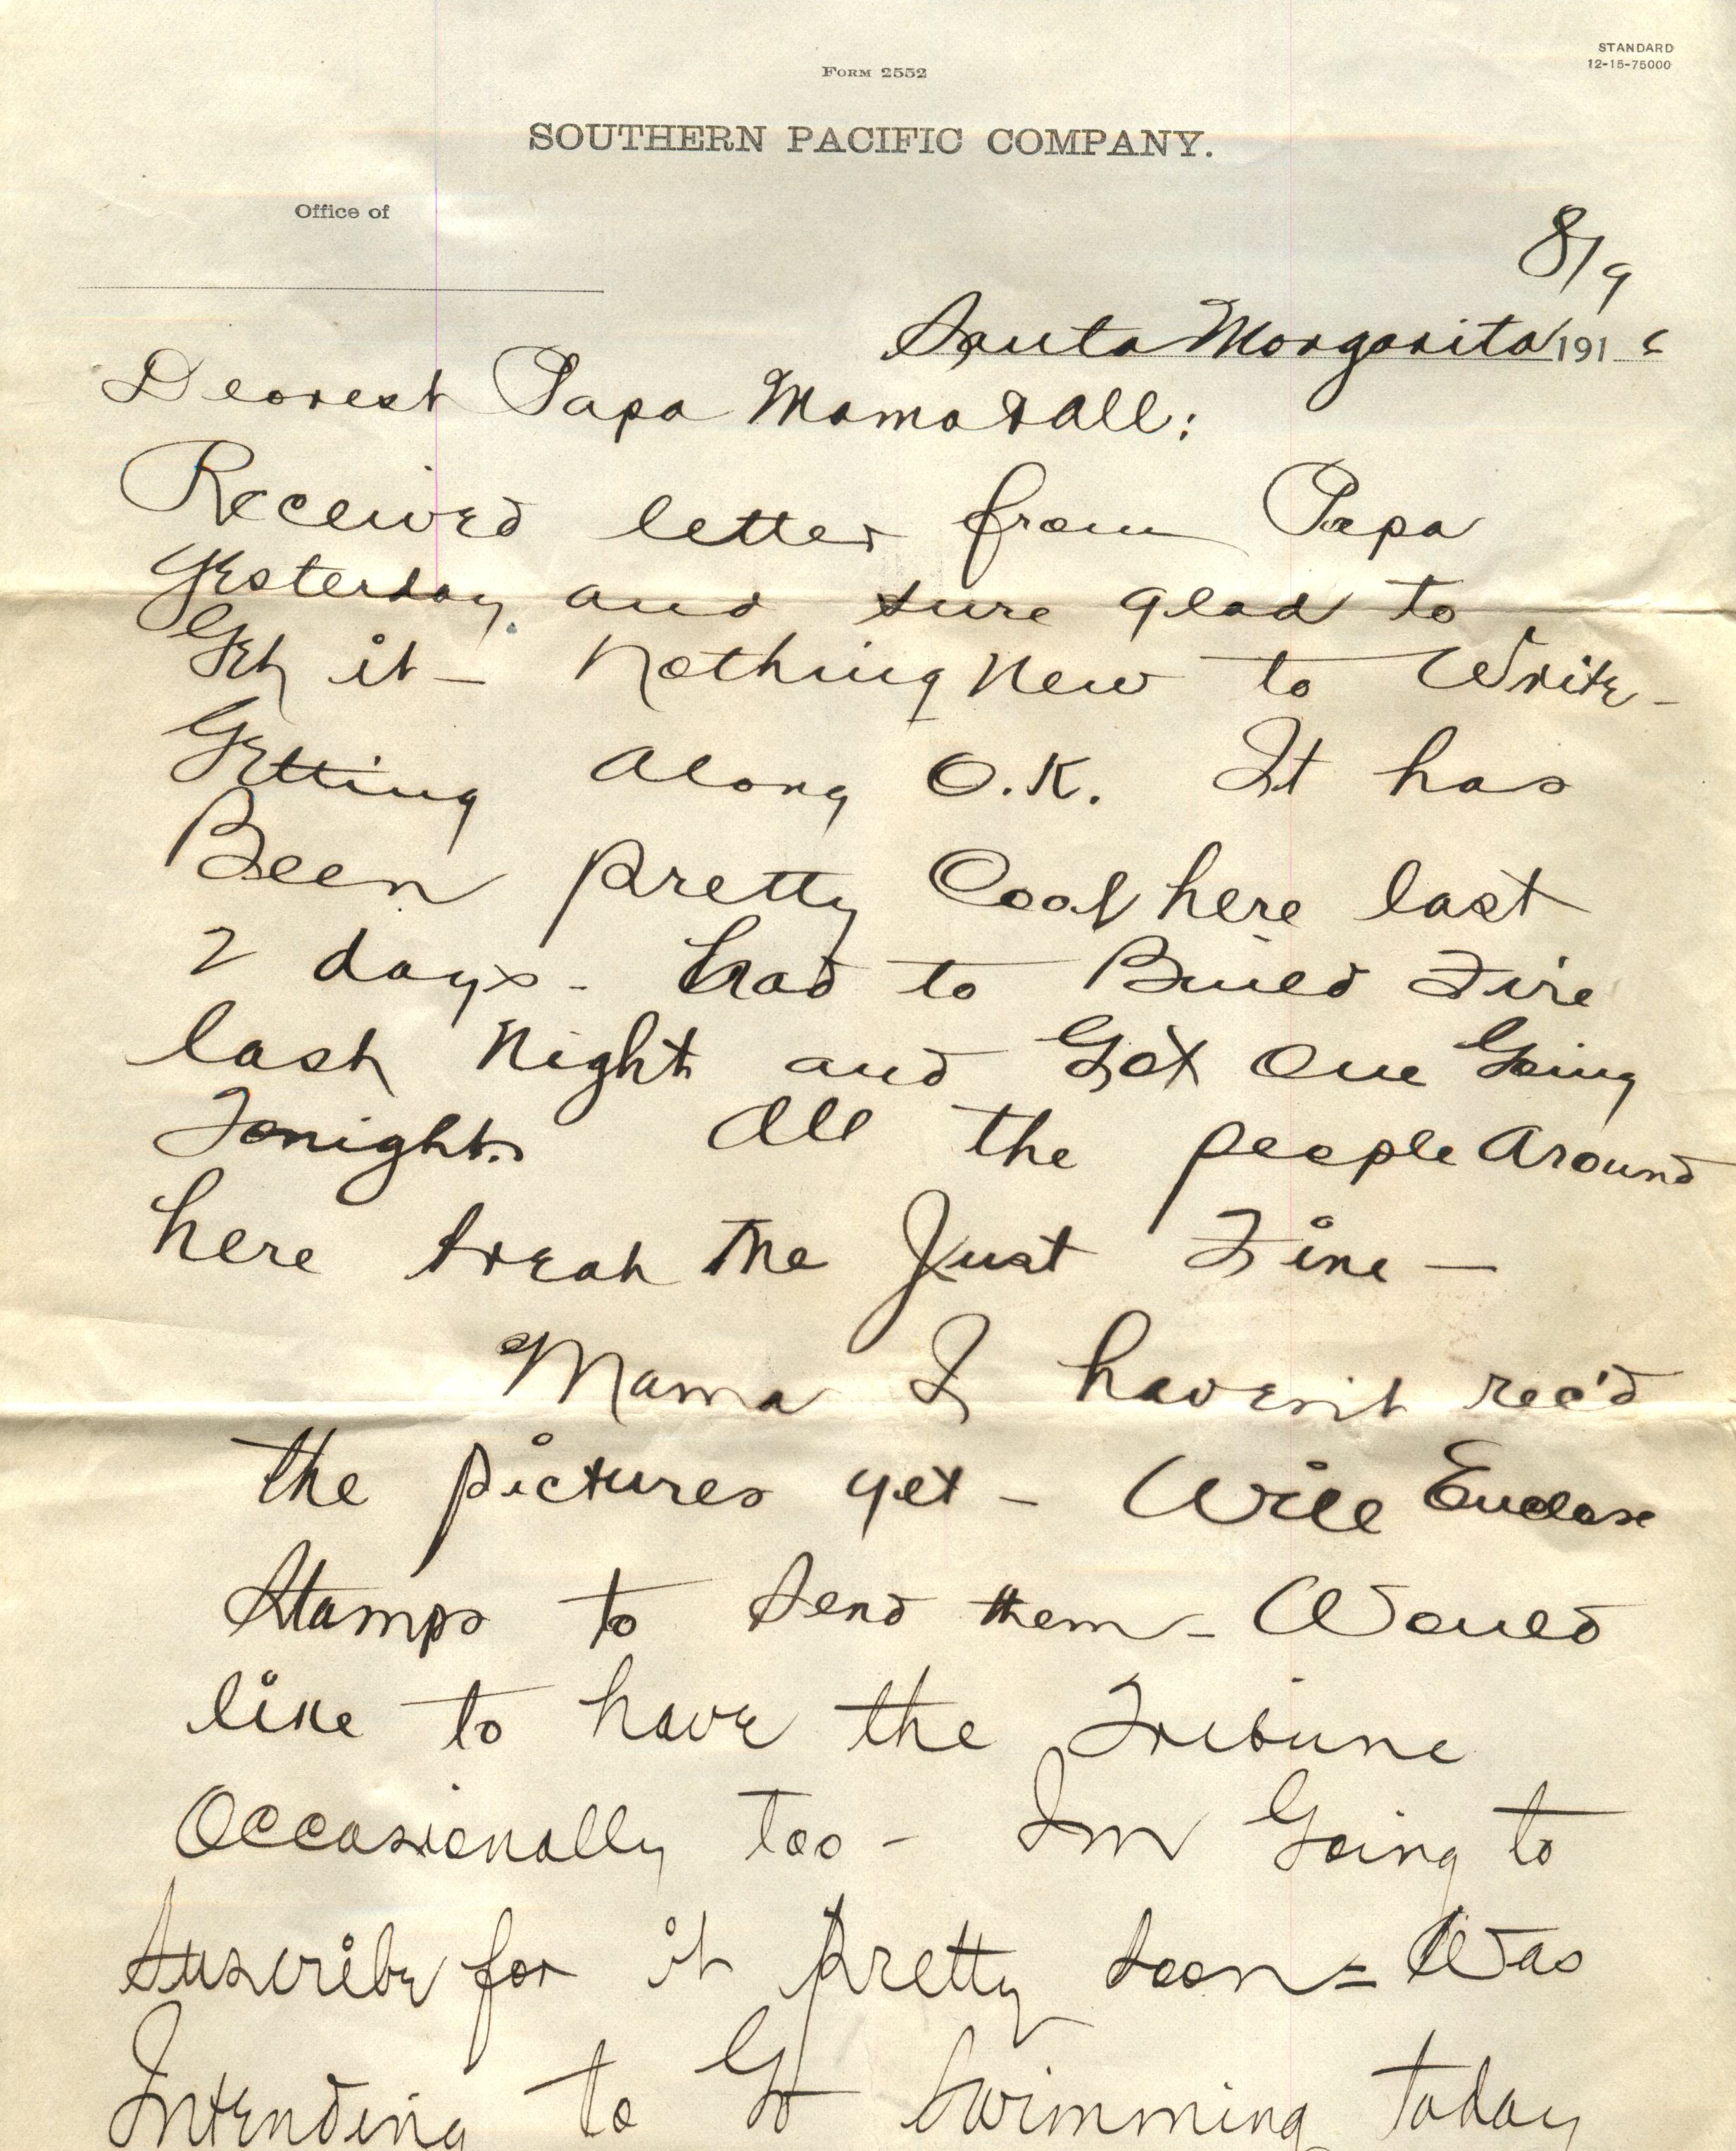 STANDARD
12-15-75000
FORM 2552
SOUTHERN PACIFIC COMPANY.
Office of
8/9
Santa Margarita 191 6
Dearest Papa Mama & All:
Received letter from Papa
Yesterday and sure glad to
Get it - Nothing New to Write -
Getting Along O.K. It has
Been pretty Cool here last
2 days - had to Build Fire
last Night and Got One Going
Tonight. All the people Around
here treat Me Just Fine -
Mama I haven't rec'd
the pictures yet - Will Enclose
Stamps to Send them - Would
like to have the Tribune
Occasionally too - Im Going to
Suscribe for it pretty soon = Was
Intending to Go Swimming today